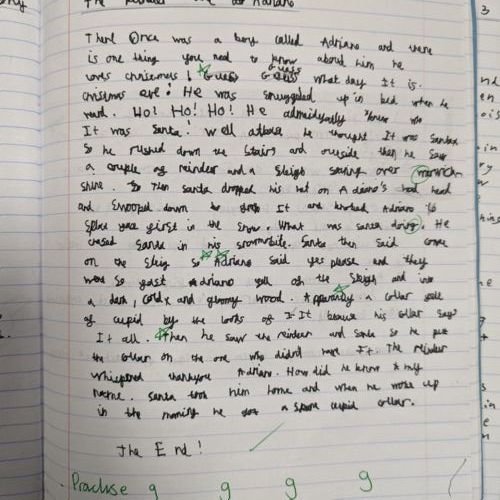 There Once was a boy called Adriano and there
is one thing you need to know about him he
loves chrismers! Guess Guess what day It is.
chrismers eve! He was snuggled up in bed when he
heard. Ho! Ho! Ho! He knew who
It was Santa! Well he thought It was Santa
So he rushed down the stairs and outside then he saw
a couple of reindeer and a Sleigh over
shine. So then santa dropped his hat on Adriano's head
and Swooped down to It and knocked Adriano to
place face first in the snow. What was santa doing. He
chased Santa in his snowmobile. Santa then said come
on the Sleig so Adriano said yes please and they
went so fast Adriano fell off the Sleigh and into
a dark, cold, and gloomy wood. Apparently a collar
of cupid by the looks of It because his collar says
It all. Then he saw the reindeer and Santa so he put
the collar on the one who didn't have It. The reindeer
whispered thankyou Adriano. How did he know my
name. Santa took him home and when he woke up
in the morning he got a spare cupid collar.
The End!
Practise g g g g